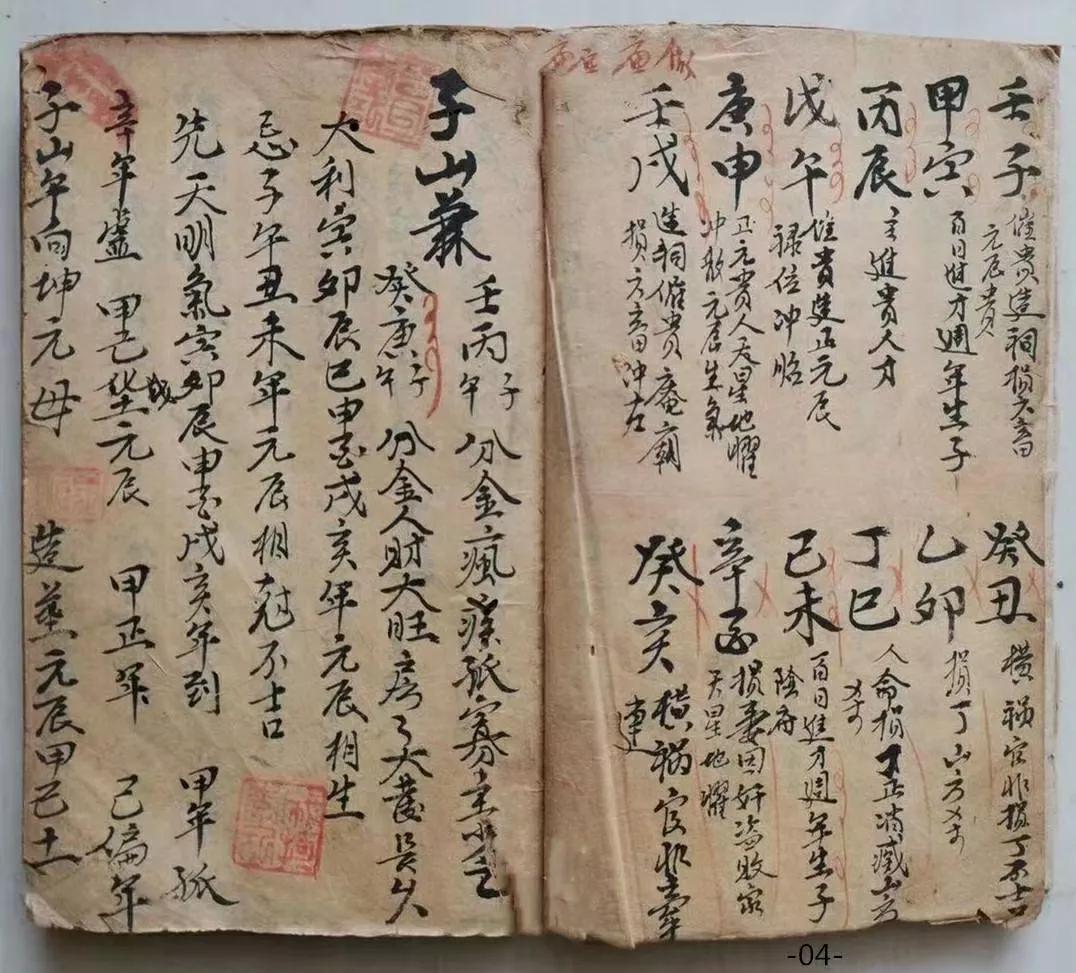 壬子 催貴造祠損六畜
元辰貴
甲寅 百日進才週年生子
丙辰 主進貴人才
戊午 催貴造正元辰
禄位冲脇
庚申 正元貴人天星地曜
冲敗元辰生氣
壬戌 造祠催貴庵廟
損六畜冲左
癸丑 横禍官非損丁不吉
乙卯 損丁山方
丁巳 人命損丁正消滅山方
己未 百日進才週年生子
陰府
辛酉 損妻因奸盗敗家
天星地曜
癸亥 横禍官非
連
子山兼 壬丙子午分金瘋痰孤寡
癸庚子午分金人財大旺房房大發長久
大利寅卯辰巳申酉戌亥年元辰相生
忌子午丑未年元辰相尅不吉
先天明氣寅卯辰申酉戌亥年到 甲年孤
辛年虚 甲己年 元辰 甲正年 己偏年
子山午向坤元母 造葬元辰甲己土
-04-